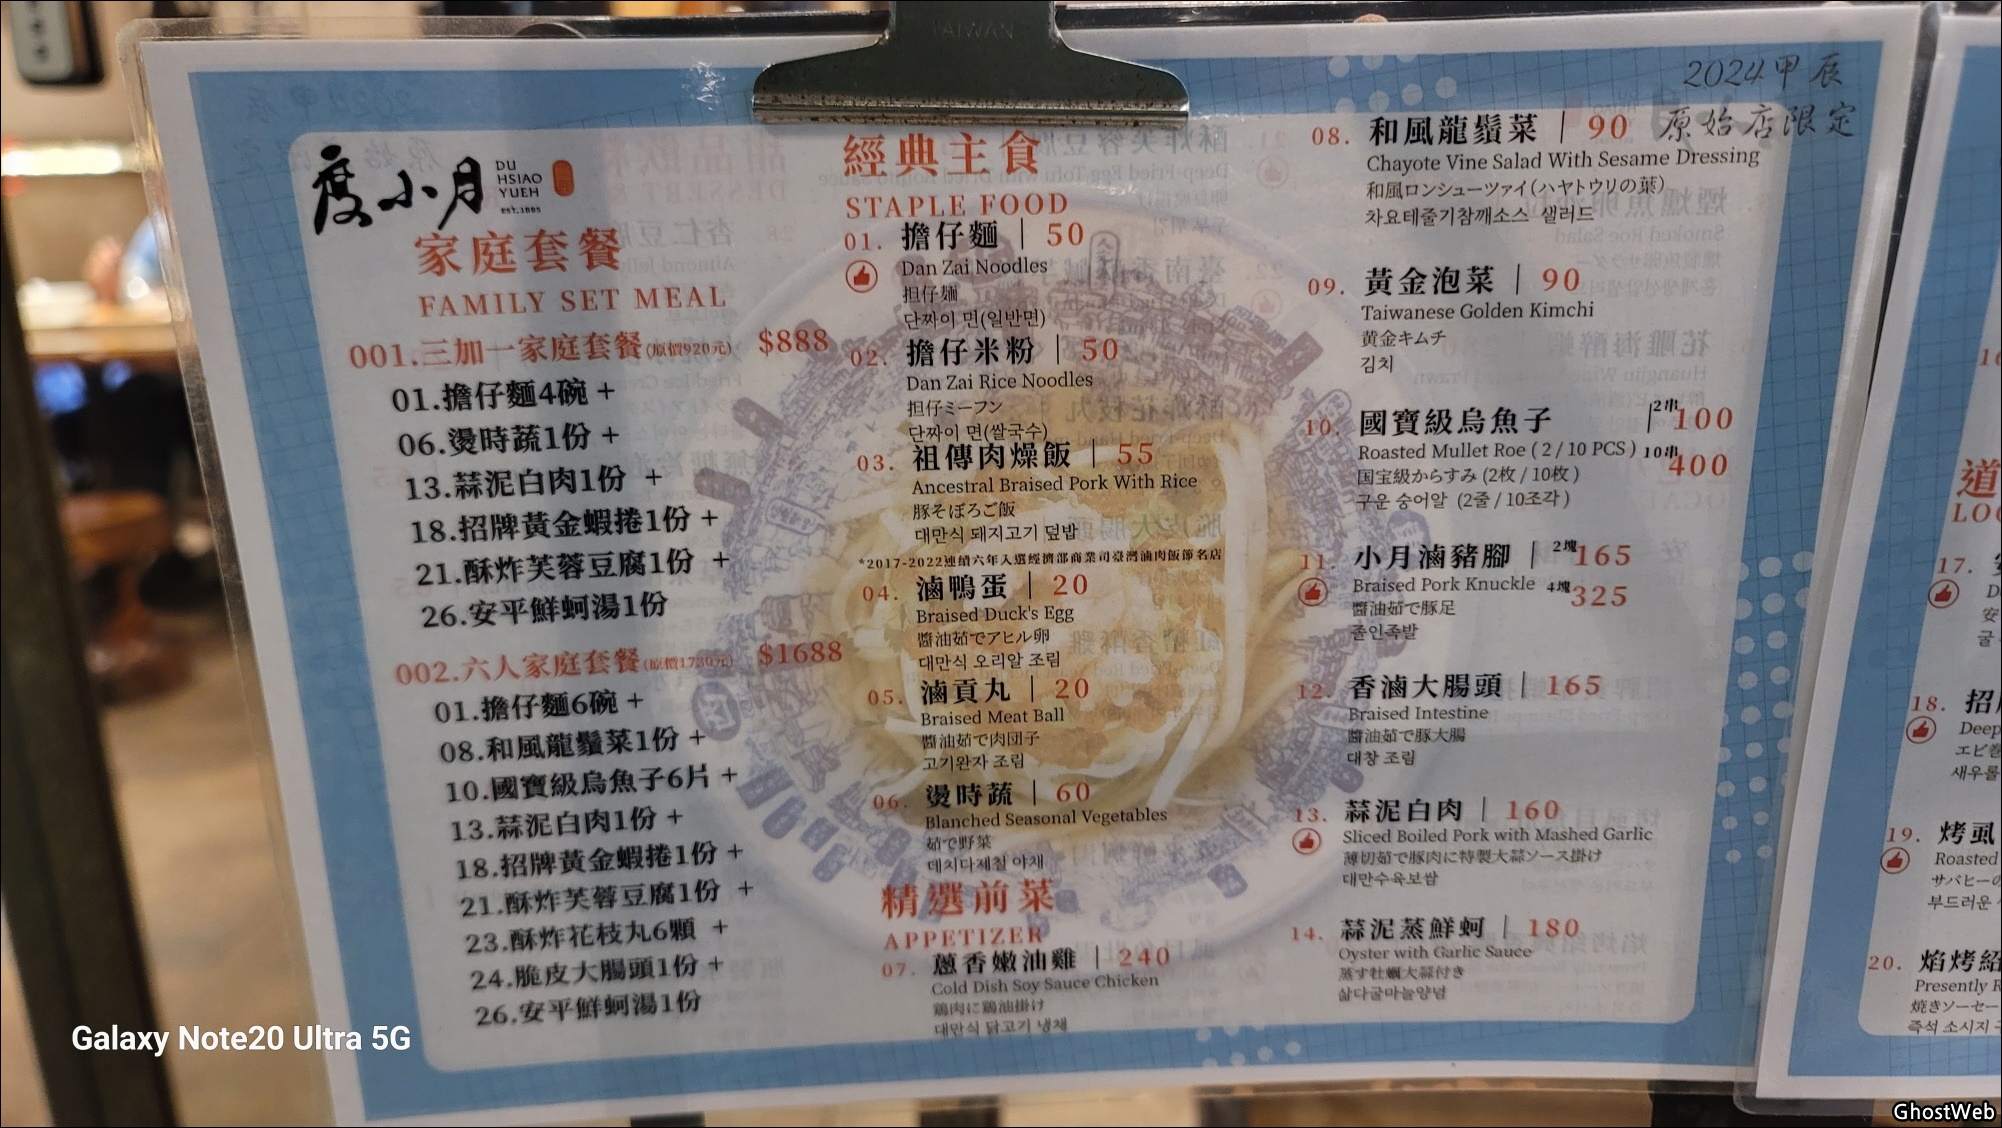 TAIWAN
2024甲辰
原始店限定
度小月
DU
HSIAO
YUEH
EST.1895
家庭套餐
FAMILY SET MEAL
001.三加一家庭套餐(原價920元) $888
01.擔仔麵4碗 +
06.燙時蔬1份 +
13.蒜泥白肉1份 +
18.招牌黃金蝦捲1份 +
21.酥炸芙蓉豆腐1份 +
26.安平鮮蚵湯1份
002.六人家庭套餐(原價1730元) $1688
01.擔仔麵6碗 +
08.和風龍鬚菜1份 +
10.國寶級烏魚子6片 +
13.蒜泥白肉1份 +
18.招牌黃金蝦捲1份 +
21.酥炸芙蓉豆腐1份 +
23.酥炸花枝丸6顆 +
24.脆皮大腸頭1份 +
26.安平鮮蚵湯1份
經典主食
STAPLE FOOD
01. 擔仔麵 | 50
Dan Zai Noodles
担仔麺
단짜이 면(일반면)
02. 擔仔米粉 | 50
Dan Zai Rice Noodles
担仔ミーフン
단짜이 면(쌀국수)
03. 祖傳肉燥飯 | 55
Ancestral Braised Pork With Rice
豚そぼろご飯
대만식 돼지고기 덮밥
*2017-2022連續六年入選經濟部商業司臺灣滷肉飯節名店
04. 滷鴨蛋 | 20
Braised Duck's Egg
醬油茹でアヒル卵
대만식 오리알 조림
05. 滷貢丸 | 20
Braised Meat Ball
醬油茹で肉団子
고기완자 조림
06. 燙時蔬 | 60
Blanched Seasonal Vegetables
茹で野菜
데치다제철 야채
精選前菜
APPETIZER
07. 蔥香嫩油雞 | 240
Cold Dish Soy Sauce Chicken
鶏肉に鶏油掛け
대만식 닭고기 냉채
08. 和風龍鬚菜 | 90
Chayote Vine Salad With Sesame Dressing
和風ロンシューツァイ(ハヤトウリの葉)
차요테줄기참깨소스 샐러드
09. 黃金泡菜 | 90
Taiwanese Golden Kimchi
黄金キムチ
김치
10. 國寶級烏魚子 | 2串 100
Roasted Mullet Roe ( 2 / 10 PCS ) 10串 400
国宝級からすみ (2枚 / 10枚 )
구운 숭어알 (2줄 / 10조각 )
11. 小月滷豬腳 | 2塊 165
Braised Pork Knuckle 4塊 325
醬油茹で豚足
졸인족발
12. 香滷大腸頭 | 165
Braised Intestine
醬油茹で豚大腸
대창 조림
13. 蒜泥白肉 | 160
Sliced Boiled Pork with Mashed Garlic
薄切茹で豚肉に特製大蒜ソース掛け
대만수육보쌈
14. 蒜泥蒸鮮蚵 | 180
Oyster with Garlic Sauce
蒸す牡蠣大蒜付き
삶다굴마늘양념
16
道
LO
17.
18. 招
Deep
エビ巻
새우롤
19. 烤虱
Roasted
サバヒーの
부드러운
20. 焰烤紹
Presently R
焼きソーセー
즉석 소시지
Galaxy Note20 Ultra 5G
GhostWeb